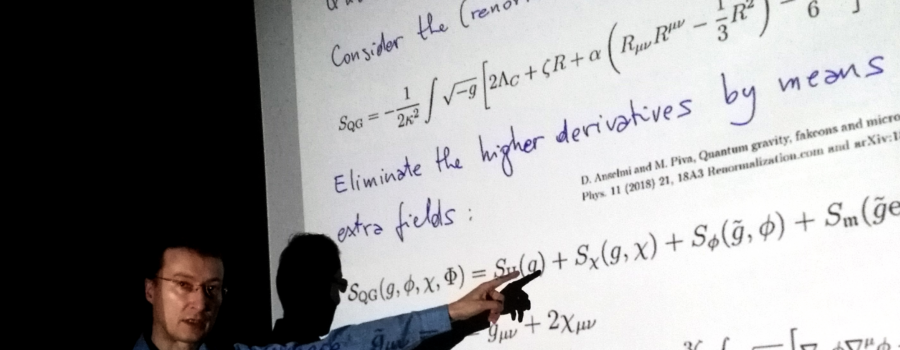 Consider the (renor
S_QG = -\frac{1}{2κ^2} ∫ √-g [ 2Λ_C + ζR + α ( R_{μν}R^{μν} - \frac{1}{3}R^2 ) - \frac{}{6} ]
Eliminate the higher derivatives by means
D. Anselmi and M. Piva, Quantum gravity, fakeons and micro
Phys. 11 (2018) 21, 18A3 Renormalization.com and arXiv:1
extra fields :
S_QG(g, φ, χ, Φ) = S (g) + S_χ(g, χ) + S_φ(g̃, φ) + S_m(g̃e
g_{μν} + 2χ_{μν}